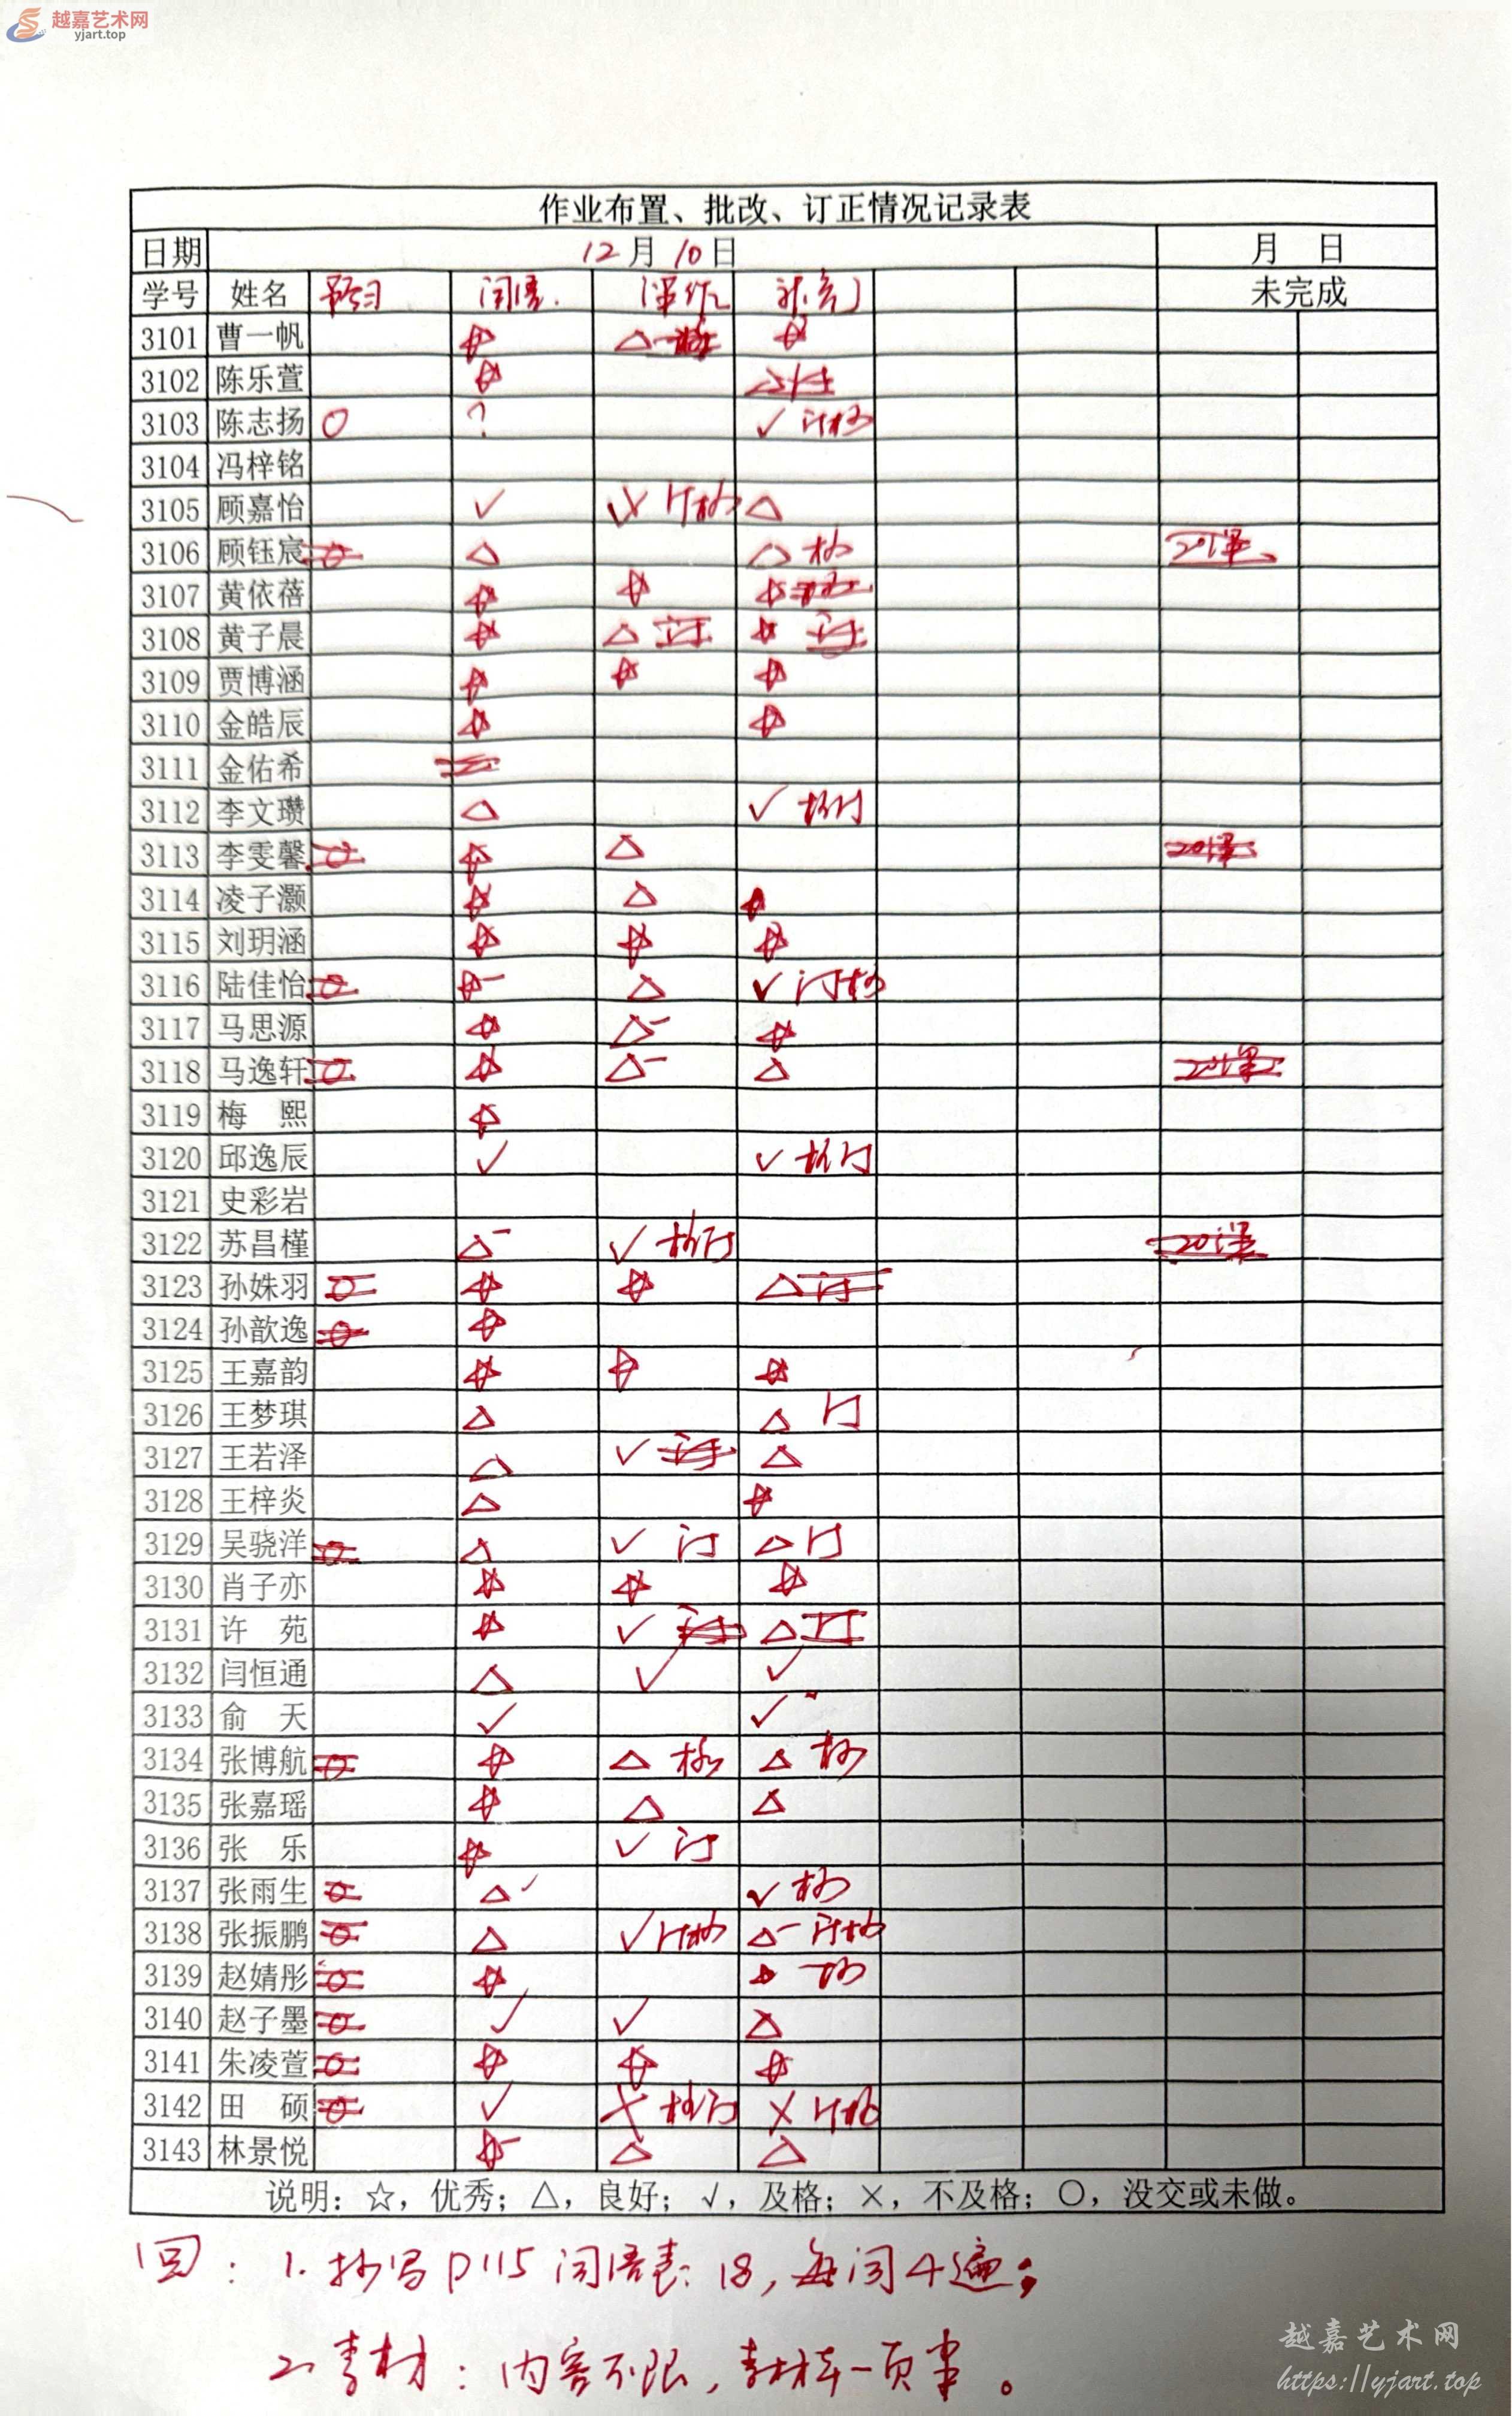 越嘉艺术网
yjart.top
作业布置、批改、订正情况记录表
日期 12月10日 月 日
学号 姓名 词语 未完成
3101 曹一帆 ☆ △ ☆
3102 陈乐萱 ☆ △
3103 陈志扬 ○ ? √ 订抄
3104 冯梓铭
3105 顾嘉怡 √ 订抄 △
3106 顾钰宸 ○ △ △ 抄 20课
3107 黄依蓓 ☆ ☆ ☆
3108 黄子晨 ☆ △ 订 ☆ 订
3109 贾博涵 ☆ ☆ ☆
3110 金皓辰 ☆ ☆
3111 金佑希
3112 李文瓒 △ √ 抄订
3113 李雯馨 ○ ☆ △ 20课
3114 凌子灏 ☆ △ ☆
3115 刘玥涵 ☆ ☆ ☆
3116 陆佳怡 ○ ☆- △ √ 订抄
3117 马思源 ☆ △- ☆
3118 马逸轩 ○ ☆ △- △ 20课
3119 梅 熙 ☆
3120 邱逸辰 √ √ 抄订
3121 史彩岩
3122 苏昌槿 △- √ 抄订 20课
3123 孙姝羽 ○ ☆ ☆ △ 订
3124 孙歆逸 ○ ☆
3125 王嘉韵 ☆ ☆ ☆
3126 王梦琪 △ △ 订
3127 王若泽 △ √ 订 △
3128 王梓炎 △ ☆
3129 吴骁洋 ○ △ √ 订 △ 订
3130 肖子亦 ☆ ☆ ☆
3131 许 苑 ☆ √ 订 △ 订
3132 闫恒通 △ √ √
3133 俞 天 √ √
3134 张博航 ○ ☆ △ 抄 △ 抄
3135 张嘉瑶 ☆ △ △
3136 张 乐 ☆ √ 订
3137 张雨生 ○ △ √ 抄
3138 张振鹏 ○ △ √ 订抄 △- 订抄
3139 赵婧彤 ○ ☆ ☆ 抄
3140 赵子墨 ○ √ √ △
3141 朱凌萱 ○ ☆ ☆ ☆
3142 田 硕 ○ √ × 抄订 × 订抄
3143 林景悦 ☆- △ △
说明：☆，优秀；△，良好；√，及格；×，不及格；○，没交或未做。
回：1.抄写P115词语表：18，每词4遍；
2.素材：内容不限，素材本一页半。
越嘉艺术网
https://yjart.top